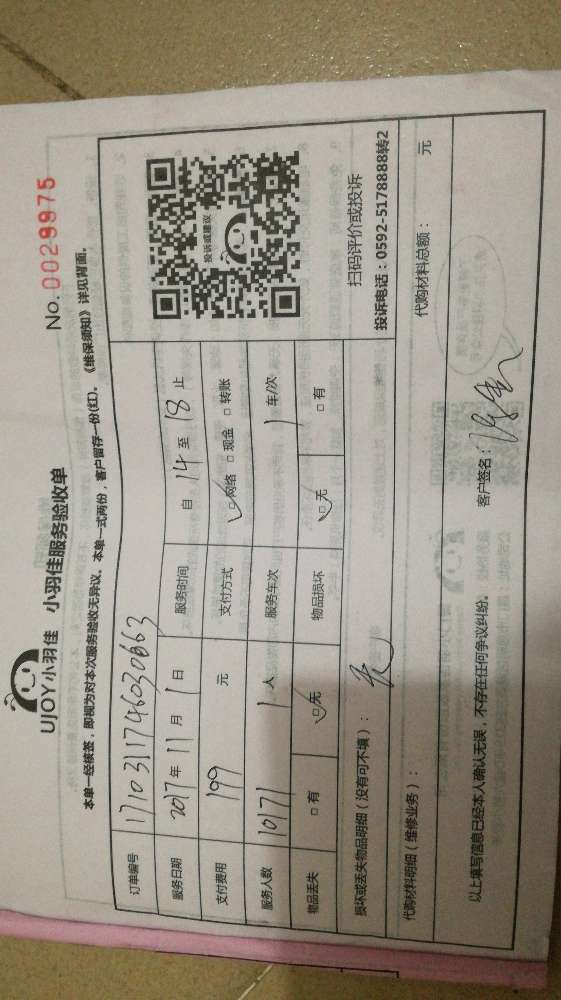 No. 0029975
UJOY小羽佳 小羽佳服务验收单
本单一经核签，即视为对本次服务验收无异议。本单一式两份，客户留存一份(红)。《维保须知》详见背面。
订单编号 171031174603066 3
服务日期 2017年11月1日 服务时间 自14至18止
支付费用 199 元 支付方式 ☑网络 □现金 □转账
服务人数 10171 1人 服务车次 1车/次
物品丢失 □有 ☑无 物品损坏 ☑无 □有
投诉或建议
扫码评价或投诉
投诉电话：0592-5178888转2
损坏或丢失物品明细（没有可不填）： 无
代购材料明细（维修业务）： 代购材料总额： 元
以上填写信息已经本人确认无误，不存在任何争议纠纷。 客户签名：